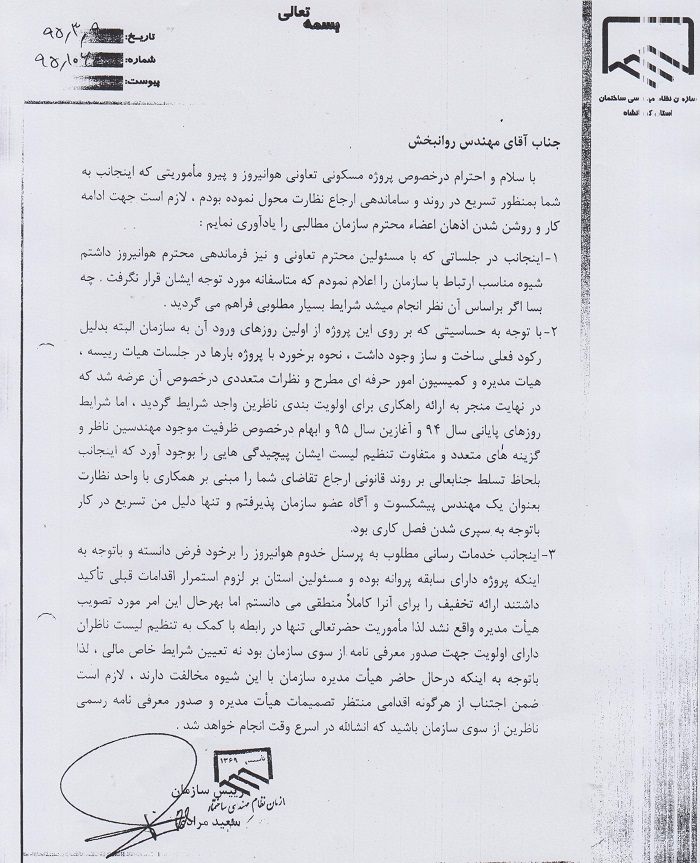 بسمه تعالی
تاریخ: ۹۵٫۳٫۹
شماره:
پیوست:
سازمان نظام مهندسی ساختمان
جناب آقای مهندس روانبخش
با سلام و احترام درخصوص پروژه مسکونی تعاونی هوانیروز و پیرو مأموریتی که اینجانب به
شما بمنظور تسریع در روند و ساماندهی ارجاع نظارت محول نموده بودم ، لازم است جهت ادامه
کار و روشن شدن اذهان اعضاء محترم سازمان مطالبی را یادآوری نمایم :
۱- اینجانب در جلساتی که با مسئولین محترم تعاونی و نیز فرماندهی محترم هوانیروز داشتم
شیوه مناسب ارتباط با سازمان را اعلام نمودم که متاسفانه مورد توجه ایشان قرار نگرفت . چه
بسا اگر براساس آن نظر انجام میشد شرایط بسیار مطلوبی فراهم می گردید .
۲- با توجه به حساسیتی که بر روی این پروژه از اولین روزهای ورود آن به سازمان البته بدلیل
رکود فعلی ساخت و ساز وجود داشت ، نحوه برخورد با پروژه بارها در جلسات هیات رییسه ،
هیات مدیره و کمیسیون امور حرفه ای مطرح و نظرات متعددی درخصوص آن عرضه شد که
در نهایت منجر به ارائه راهکاری برای اولویت بندی ناظرین واجد شرایط گردید ، اما شرایط
روزهای پایانی سال ۹۴ و آغازین سال ۹۵ و ابهام درخصوص ظرفیت موجود مهندسین ناظر و
گزینه های متعدد و متفاوت تنظیم لیست ایشان پیچیدگی هایی را بوجود آورد که اینجانب
بلحاظ تسلط جنابعالی بر روند قانونی ارجاع تقاضای شما را مبنی بر همکاری با واحد نظارت
بعنوان یک مهندس پیشکسوت و آگاه عضو سازمان پذیرفتم و تنها دلیل من تسریع در کار
باتوجه به سپری شدن فصل کاری بود.
۳- اینجانب خدمات رسانی مطلوب به پرسنل خدوم هوانیروز را برخود فرض دانسته و باتوجه به
اینکه پروژه دارای سابقه پروانه بوده و مسئولین استان بر لزوم استمرار اقدامات قبلی تأکید
داشتند ارائه تخفیف را برای آنرا کاملاً منطقی می دانستم اما بهرحال این امر مورد تصویب
هیأت مدیره واقع نشد لذا مأموریت حضرتعالی تنها در رابطه با کمک به تنظیم لیست ناظران
دارای اولویت جهت صدور معرفی نامه از سوی سازمان بود نه تعیین شرایط خاص مالی ، لذا
باتوجه به اینکه درحال حاضر هیأت مدیره سازمان با این شیوه مخالفت دارند ، لازم است
ضمن اجتناب از هرگونه اقدامی منتظر تصمیمات هیأت مدیره و صدور معرفی نامه رسمی
ناظرین از سوی سازمان باشید که انشالله در اسرع وقت انجام خواهد شد .
تاسیس ۱۳۶۹
رییس سازمان
سازمان نظام مهندسی ساختمان
سعید مرادی